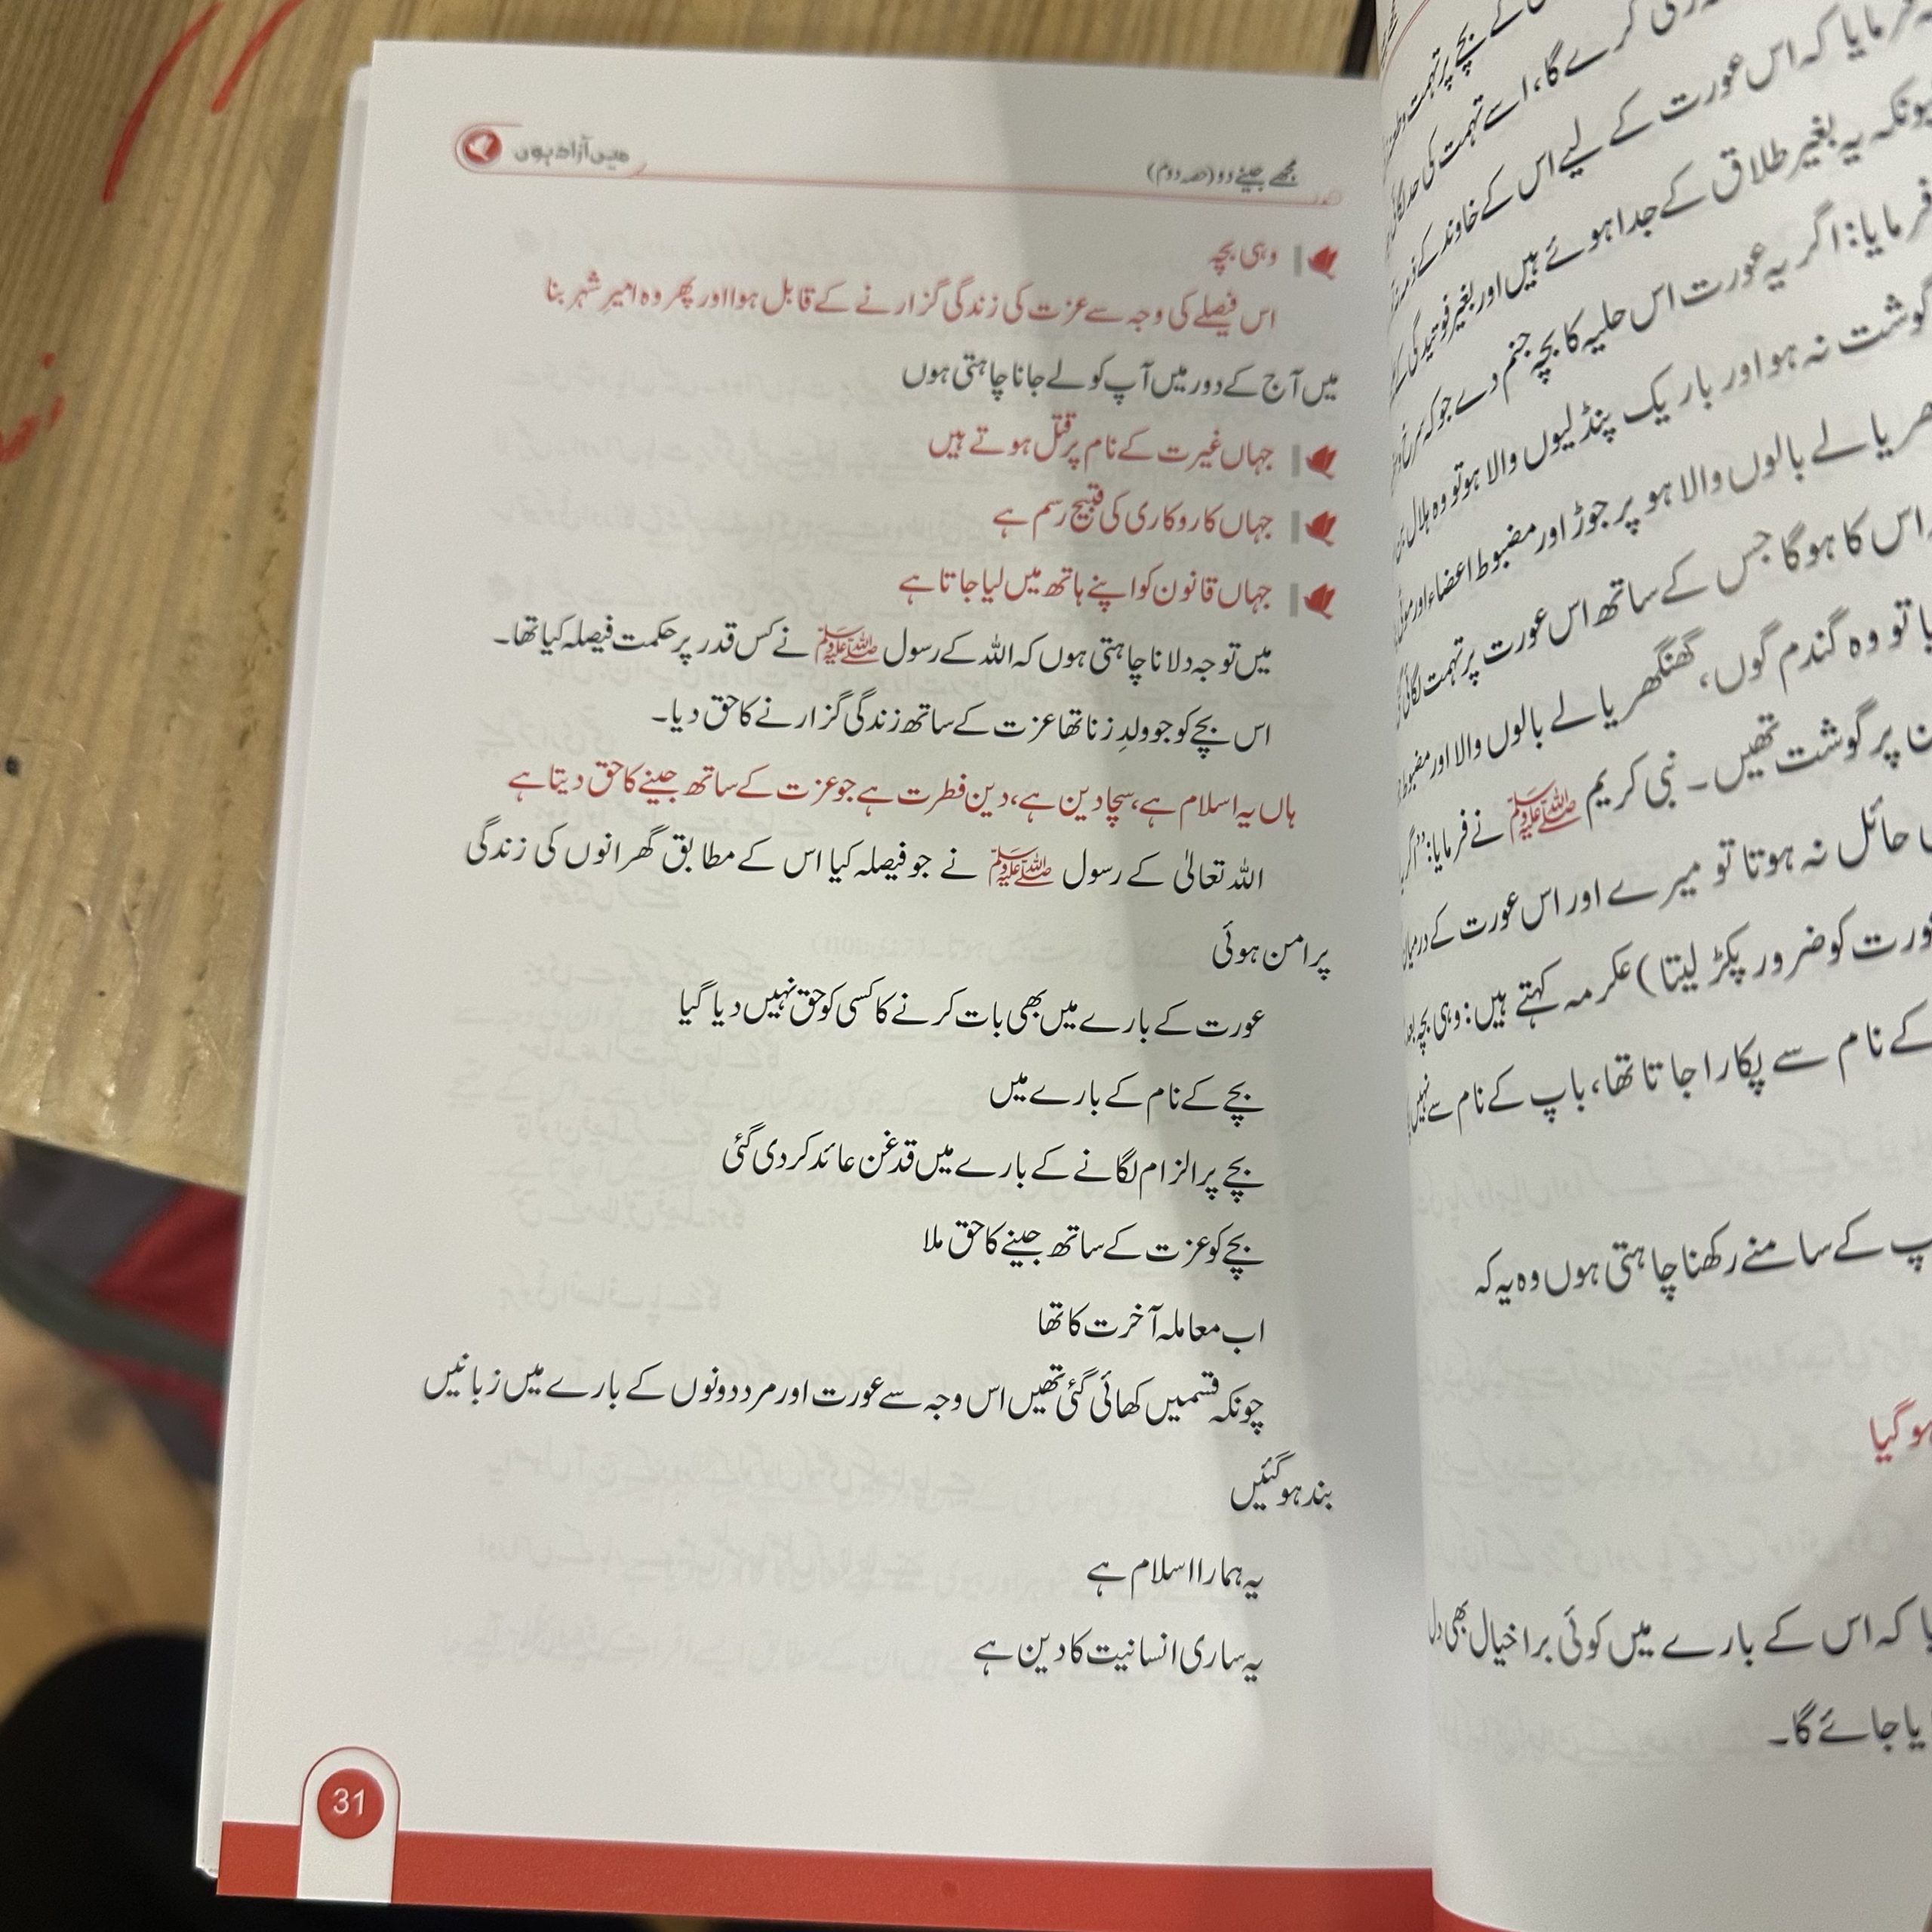 مجھے جینے دو (حصہ دوم)
میں آزاد ہوں
وہی بچہ
اس فیصلے کی وجہ سے عزت کی زندگی گزارنے کے قابل ہوا اور پھر وہ امیرِ شہر بنا
میں آج کے دور میں آپ کو لے جانا چاہتی ہوں
جہاں غیرت کے نام پر قتل ہوتے ہیں
جہاں کاروکاری کی قبیح رسم ہے
جہاں قانون کو اپنے ہاتھ میں لیا جاتا ہے
میں توجہ دلانا چاہتی ہوں کہ اللہ کے رسول ﷺ نے کس قدر پر حکمت فیصلہ کیا تھا۔
اس بچے کو جو ولدِ زنا تھا عزت کے ساتھ زندگی گزارنے کا حق دیا۔
ہاں یہ اسلام ہے، سچا دین ہے، دین فطرت ہے جو عزت کے ساتھ جینے کا حق دیتا ہے
اللہ تعالیٰ کے رسول ﷺ نے جو فیصلہ کیا اس کے مطابق گھرانوں کی زندگی
پرامن ہوئی
عورت کے بارے میں بھی بات کرنے کا کسی کو حق نہیں دیا گیا
بچے کے نام کے بارے میں
بچے پر الزام لگانے کے بارے میں قدغن عائد کر دی گئی
بچے کو عزت کے ساتھ جینے کا حق ملا
اب معاملہ آخرت کا تھا
چونکہ قسمیں کھائی گئی تھیں اس وجہ سے عورت اور مرد دونوں کے بارے میں زبانیں
بند ہو گئیں
یہ ہمارا اسلام ہے
یہ ساری انسانیت کا دین ہے
31
کے بچے پر تہمت
کرے گا، اسے تہمت کی حد
فرمایا کہ اس عورت کے لیے اس کے خاوند کے ذمہ
یہ بغیر طلاق کے جدا ہوئے ہیں اور بغیر فوتیدگی کے
فرمایا: اگر یہ عورت اس حلیہ کا بچہ جنم دے جو کہ
گوشت نہ ہو اور باریک پنڈلیوں والا ہو تو وہ ہلال
بالوں والا ہو پر جوڑ اور مضبوط اعضاء اور
اس کا ہوگا جس کے ساتھ اس عورت پر تہمت لگائی
تو وہ گندم گوں، گھنگھریالے بالوں والا اور
پر گوشت تھیں۔ نبی کریم ﷺ نے فرمایا: ''اگر
حائل نہ ہوتا تو میرے اور اس عورت کے درمیان
کو ضرور پکڑ لیتا) عکرمہ کہتے ہیں: وہی بچہ
کے نام سے پکارا جاتا تھا، باپ کے نام سے نہیں
کے سامنے رکھنا چاہتی ہوں وہ یہ کہ
ہو گیا
کہ اس کے بارے میں کوئی برا خیال بھی دل
جائے گا۔